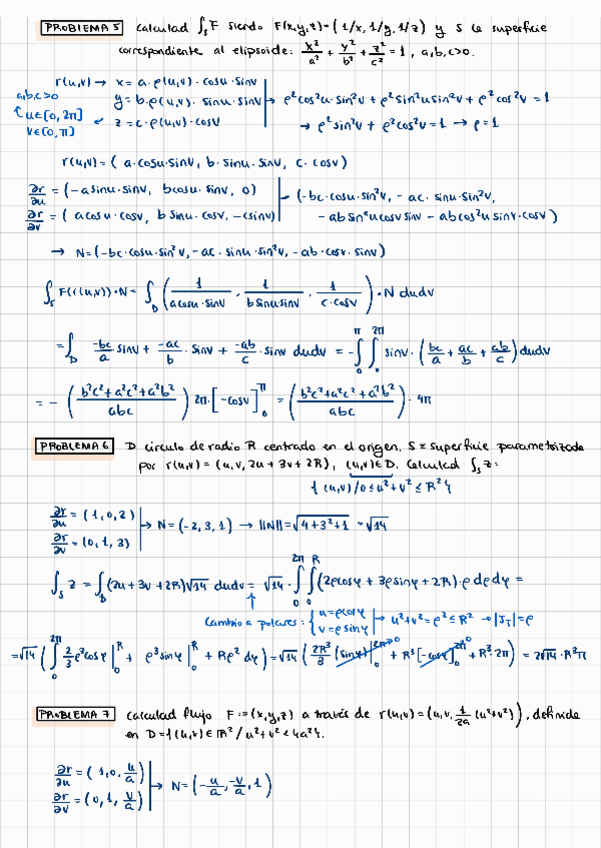 PROBLEMA 5 Calculad ∫_S F siendo F(x,y,z)=(1/x, 1/y, 1/z) y S la superficie
correspondiente al elipsoide: x²/a² + y²/b² + z²/c² = 1, a,b,c>0.
r(u,v) → x = a·ρ(u,v)·cosu·sinv
a,b,c>0 y = b·ρ(u,v)·sinu·sinv → ρ²cos²u·sin²v + ρ²sin²u sin²v + ρ²cos²v = 1
u∈[0,2π] z = c·ρ(u,v)·cosv → ρ²sin²v + ρ²cos²v = 1 → ρ = 1
v∈[0,π]
r(u,v) = (a·cosu·sinv, b·sinu·sinv, c·cosv)
∂r/∂u = (-a sinu·sinv, b cosu·sinv, 0) (-bc·cosu·sin²v, -ac·sinu·sin²v,
∂r/∂v = (a cosu·cosv, b sinu·cosv, -c sinv) -ab sin²u cosv sinv - ab cos²u sinv·cosv)
→ N = (-bc·cosu·sin²v, -ac·sinu·sin²v, -ab·cosv·sinv)
∫_S F(r(u,v))·N = ∫_D (1/(a cosu·sinv), 1/(b sinu sinv), 1/(c·cosv))·N dudv
= ∫_D -bc/a sinv + -ac/b · sinv + -ab/c · sinv dudv = -∫_0^π ∫_0^2π sinv·(bc/a + ac/b + ab/c) dudv
= -((b²c²+a²c²+a²b²)/abc) 2π·[-cosv]_0^π = ((b²c²+a²c²+a²b²)/abc)·4π
PROBLEMA 6 D círculo de radio R centrado en el origen. S = superficie parametrizada
por r(u,v) = (u, v, 2u+3v+2R), (u,v)∈D. Calculad ∫_S z:
{(u,v)/0≤u²+v²≤R²}
∂r/∂u = (1,0,2) → N = (-2,3,1) → ||N|| = √4+3²+1 = √14
∂r/∂v = (0,1,3)
∫_S z = ∫_D (2u+3v+2R)√14 dudv = √14·∫_0^2π ∫_0^R (2ρcosφ + 3ρsinφ + 2R)·ρ dρdφ =
Cambio a polares: {u=ρcosφ v=ρsinφ → u²+v²=ρ²≤R² → |J_T|=ρ
= √14 (∫_0^2π 2/3 ρ³cosφ|_0^R + ρ³sinφ|_0^R + Rρ² dφ) = √14 (2R³/3 (sinφ)|_0^2π + R³[-cosφ]_0^2π + R³·2π) = 2√14·R³π
PROBLEMA 7 Calculad flujo F:=(x,y,z) a través de r(u,v)=(u,v,1/2a (u²+v²)), definida
en D={(u,v)∈ℝ²/u²+v²<4a²}.
∂r/∂u = (1,0,u/a) → N = (-u/a, -v/a, 1)
∂r/∂v = (0,1,v/a)